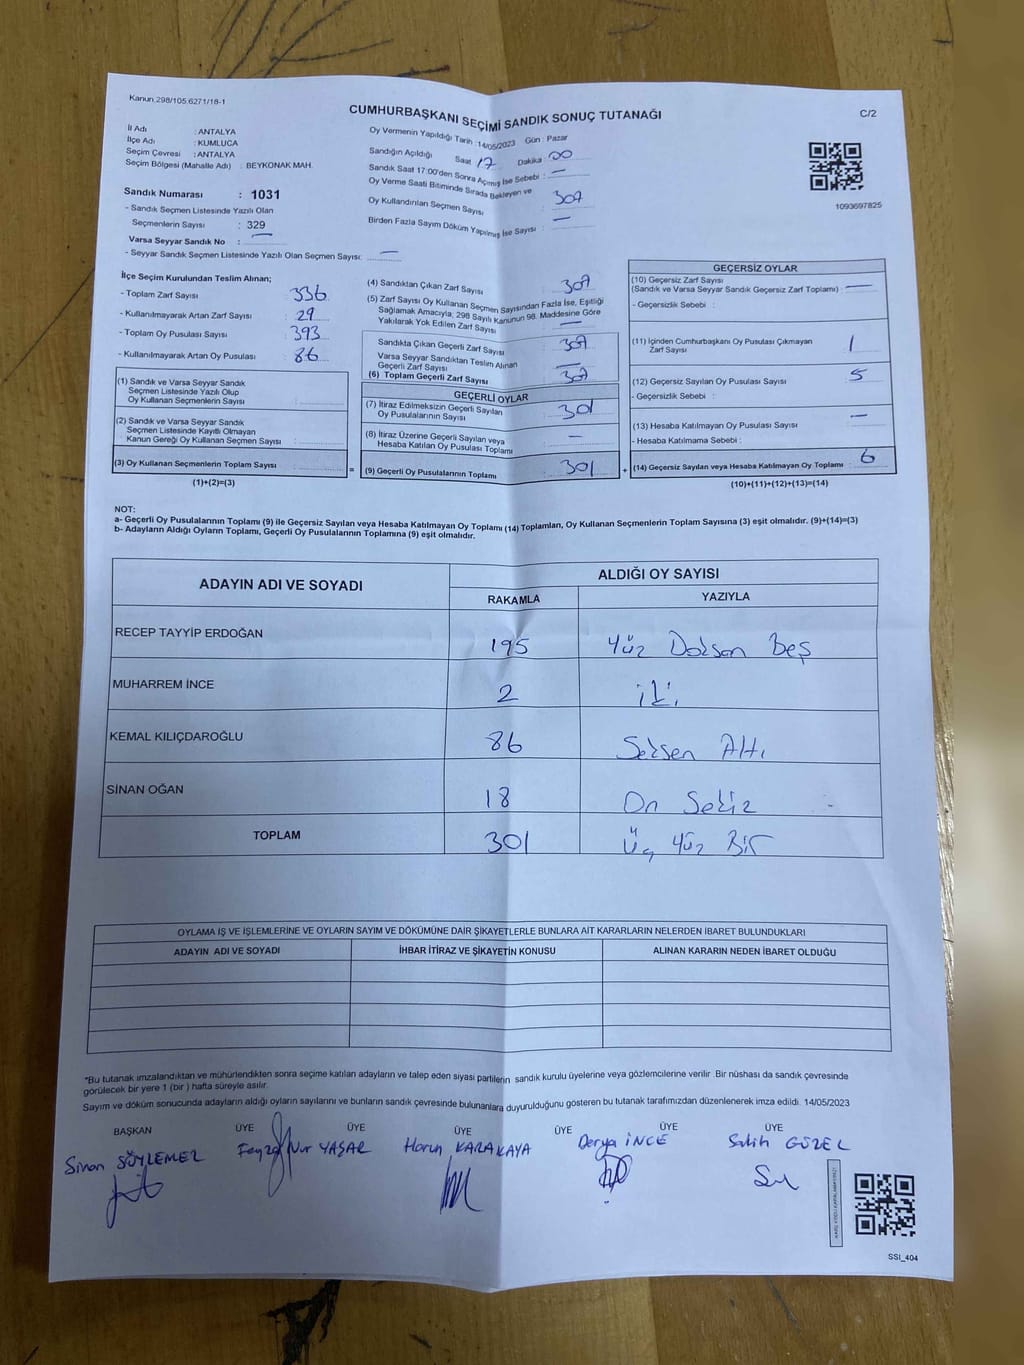 Kanun.298/105,6271/18-1
CUMHURBAŞKANI SEÇİMİ SANDIK SONUÇ TUTANAĞI
C/2
İl Adı : ANTALYA
İlçe Adı : KUMLUCA
Seçim Çevresi : ANTALYA
Seçim Bölgesi (Mahalle Adı) : BEYKONAK MAH.
Sandık Numarası : 1031
- Sandık Seçmen Listesinde Yazılı Olan
Seçmenlerin Sayısı : 329
Varsa Seyyar Sandık No : —
- Seyyar Sandık Seçmen Listesinde Yazılı Olan Seçmen Sayısı: —
Oy Vermenin Yapıldığı Tarih : 14/05/2023 Gün : Pazar
Sandığın Açıldığı Saat 17 Dakika : 00
Sandık Saat 17:00'den Sonra Açılmış İse Sebebi : —
Oy Verme Saati Bitiminde Sırada Bekleyen ve
Oy Kullandırılan Seçmen Sayısı 307
Birden Fazla Sayım Döküm Yapılmış İse Sayısı : —
1093697825
İlçe Seçim Kurulundan Teslim Alınan;
- Toplam Zarf Sayısı : 336
- Kullanılmayarak Artan Zarf Sayısı : 29
- Toplam Oy Pusulası Sayısı : 393
- Kullanılmayarak Artan Oy Pusulası : 86
(1) Sandık ve Varsa Seyyar Sandık
Seçmen Listesinde Yazılı Olup
Oy Kullanan Seçmenlerin Sayısı :
(2) Sandık ve Varsa Seyyar Sandık
Seçmen Listesinde Kayıtlı Olmayan
Kanun Gereği Oy Kullanan Seçmen Sayısı :
(3) Oy Kullanan Seçmenlerin Toplam Sayısı :
(1)+(2)=(3)
(4) Sandıktan Çıkan Zarf Sayısı : 307
(5) Zarf Sayısı Oy Kullanan Seçmen Sayısından Fazla İse, Eşitliği
Sağlamak Amacıyla, 298 Sayılı Kanunun 98. Maddesine Göre
Yakılarak Yok Edilen Zarf Sayısı : —
Sandıkta Çıkan Geçerli Zarf Sayısı : 307
Varsa Seyyar Sandıktan Teslim Alınan
Geçerli Zarf Sayısı : —
(6) Toplam Geçerli Zarf Sayısı : 307
=
GEÇERLİ OYLAR
(7) İtiraz Edilmeksizin Geçerli Sayılan
Oy Pusulasının Sayısı : 301
(8) İtiraz Üzerine Geçerli Sayılan veya
Hesaba Katılan Oy Pusulası Toplamı : —
(9) Geçerli Oy Pusulalarının Toplamı : 301
+
GEÇERSİZ OYLAR
(10) Geçersiz Zarf Sayısı
(Sandık ve Varsa Seyyar Sandık Geçersiz Zarf Toplamı) : —
- Geçersizlik Sebebi :
(11) İçinden Cumhurbaşkanı Oy Pusulası Çıkmayan
Zarf Sayısı : 1
(12) Geçersiz Sayılan Oy Pusulası Sayısı : 5
- Geçersizlik Sebebi :
(13) Hesaba Katılmayan Oy Pusulası Sayısı : —
- Hesaba Katılmama Sebebi :
(14) Geçersiz Sayılan veya Hesaba Katılmayan Oy Toplamı : 6
(10)+(11)+(12)+(13)=(14)
NOT:
a- Geçerli Oy Pusulalarının Toplamı (9) ile Geçersiz Sayılan veya Hesaba Katılmayan Oy Toplamı (14) Toplamları, Oy Kullanan Seçmenlerin Toplam Sayısına (3) eşit olmalıdır. (9)+(14)=(3)
b- Adayların Aldığı Oyların Toplamı, Geçerli Oy Pusulalarının Toplamına (9) eşit olmalıdır.
ADAYIN ADI VE SOYADI
ALDIĞI OY SAYISI
RAKAMLA YAZIYLA
RECEP TAYYİP ERDOĞAN 195 Yüz Doksan Beş
MUHARREM İNCE 2 iki
KEMAL KILIÇDAROĞLU 86 Seksen Altı
SİNAN OĞAN 18 On Sekiz
TOPLAM 301 Üç Yüz Bir
OYLAMA İŞ VE İŞLEMLERİNE VE OYLARIN SAYIM VE DÖKÜMÜNE DAİR ŞİKAYETLERLE BUNLARA AİT KARARLARIN NELERDEN İBARET BULUNDUKLARI
ADAYIN ADI VE SOYADI İHBAR İTİRAZ VE ŞİKAYETİN KONUSU ALINAN KARARIN NEDEN İBARET OLDUĞU
*Bu tutanak imzalandıktan ve mühürlendikten sonra seçime katılan adayların ve talep eden siyasi partilerin sandık kurulu üyelerine veya gözlemcilerine verilir .Bir nüshası da sandık çevresinde
görülecek bir yere 1 (bir ) hafta süreyle asılır.
Sayım ve döküm sonucunda adayların aldığı oyların sayılarını ve bunların sandık çevresinde bulunanlara duyurulduğunu gösteren bu tutanak tarafımızdan düzenlenerek imza edildi. 14/05/2023
BAŞKAN ÜYE ÜYE ÜYE ÜYE ÜYE
Sinan SÖYLEMEZ Feyza Nur YAŞAR Harun KARAKAYA Derya İNCE Salih GÜZEL
SSI_404